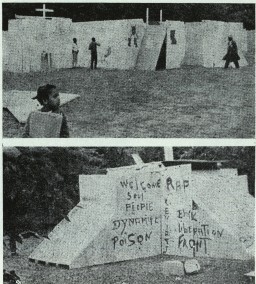 WELCOME
SOUL
PEOPLE
DYNAMIC
POISON
RAP
BLK
LIBERATION
FRONT